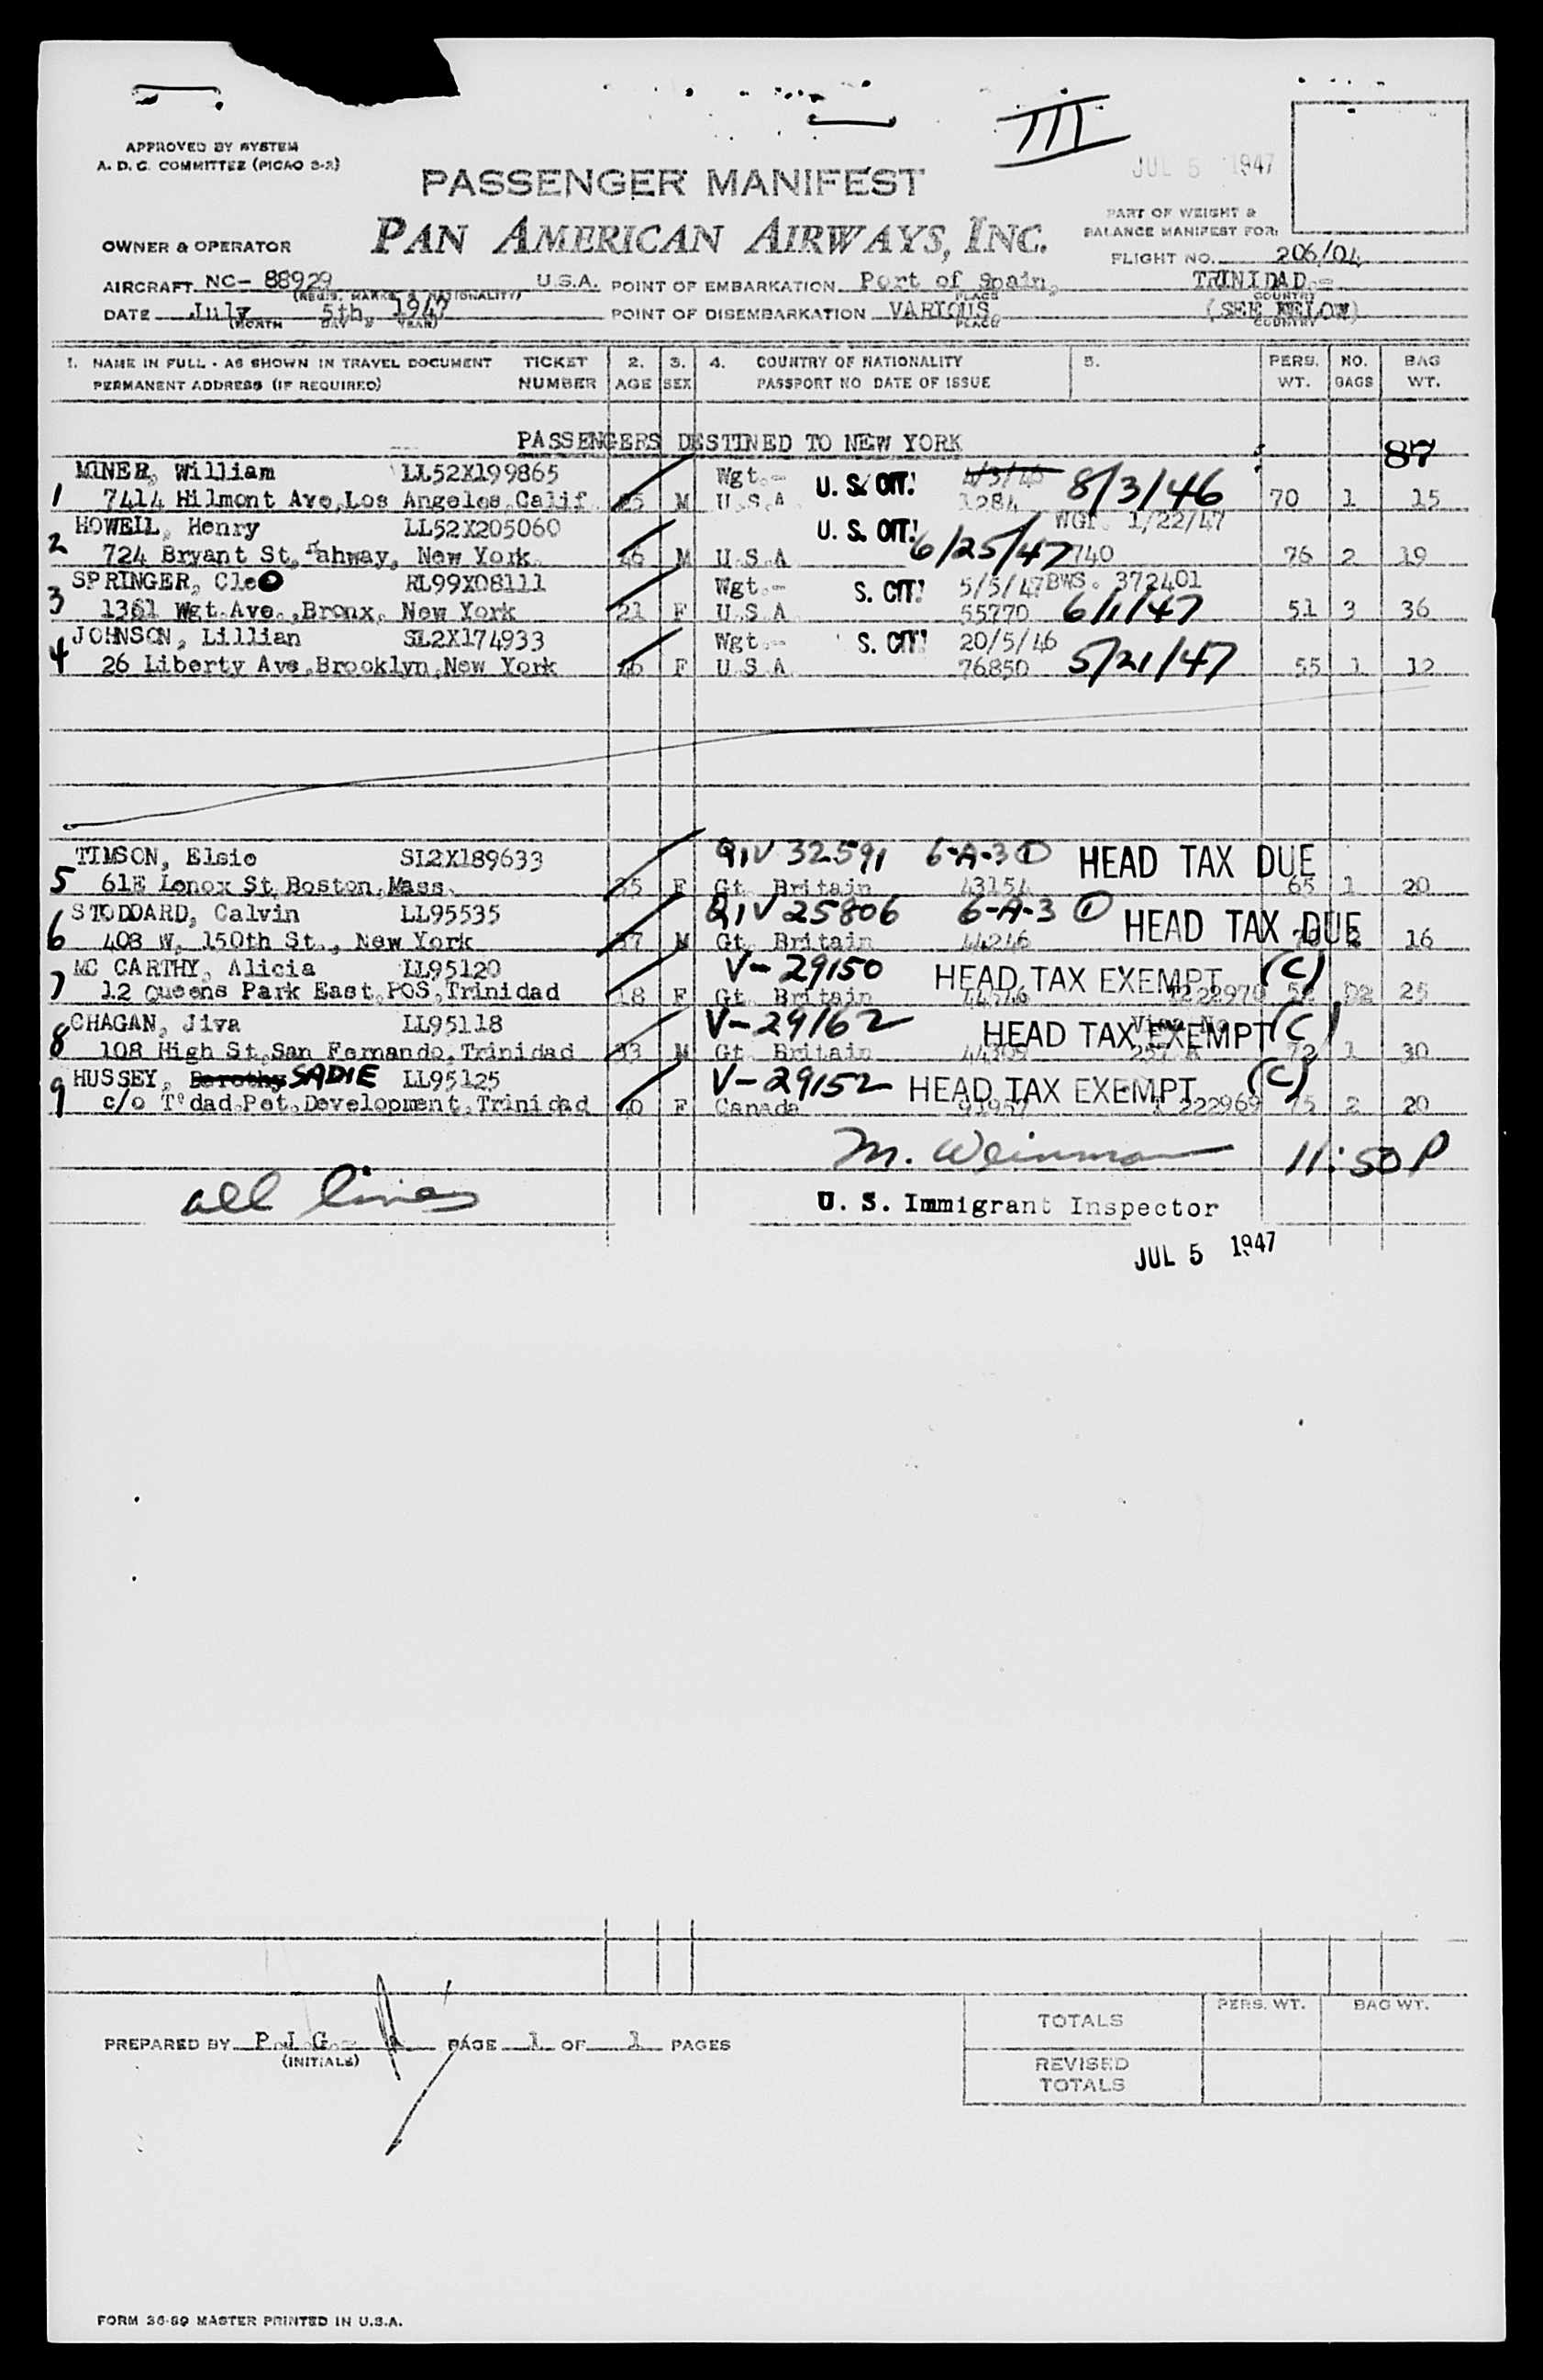 III
APPROVED BY SYSTEM
A. D. C. COMMITTEE (PICAO 2-2)
JUL 5 1947
PASSENGER MANIFEST
PART OF WEIGHT &
BALANCE MANIFEST FOR:
OWNER & OPERATOR PAN AMERICAN AIRWAYS, INC.
FLIGHT NO. 206/04
AIRCRAFT NC- 88929 U.S.A. POINT OF EMBARKATION Port of Spain, TRINIDAD.-
(REGIS. MARKS & NATIONALITY) PLACE COUNTRY
DATE July 5th, 1947 POINT OF DISEMBARKATION VARIOUS, (SEE BELOW)
(MONTH DAY & YEAR) PLACE COUNTRY
1. NAME IN FULL - AS SHOWN IN TRAVEL DOCUMENT TICKET 2. 3. 4. COUNTRY OF NATIONALITY 5. PERS. NO. BAG
PERMANENT ADDRESS (IF REQUIRED) NUMBER AGE SEX PASSPORT NO DATE OF ISSUE WT. BAGS WT.
PASSENGERS DESTINED TO NEW YORK 87
MINER, William LL52X199865 Wgt.- U. S. CIT! 8/3/46
1 7414 Hilmont Ave, Los Angeles, Calif. M U.S.A. 1284 70 1 15
HOWELL, Henry LL52X205060 U. S. CIT! WGT. 1/22/47
2 724 Bryant St, Rahway, New York. M U.S.A 6/25/47 740 76 2 19
SPRINGER, CleO RL99X08111 Wgt.- S. CIT! 5/5/47 BWS. 372401
3 1361 Wgt.Ave.,Bronx, New York 21 F U.S.A 55770 6/1/47 51 3 36
JOHNSON, Lillian SL2X174933 Wgt.- S. CIT! 20/5/46
4 26 Liberty Ave,Brooklyn,New York F U.S.A. 76850 5/21/47 55 1 12
TIMSON, Elsie SL2X189633 QIV 32591 6-A-3 ① HEAD TAX DUE
5 61E Lenox St, Boston, Mass. 35 F Gt. Britain 43154 65 1 20
STODDARD, Calvin LL95535 QIV 25806 6-A-3 ① HEAD TAX DUE
6 408 W. 150th St., New York M Gt. Britain 44246 16
MC CARTHY, Alicia LL95120 V-29150 HEAD TAX EXEMPT (C)
7 12 Queens Park East, POS, Trinidad 18 F Gt. Britain 25
CHAGAN, Jiva LL95118 V-29162 HEAD TAX EXEMPT (C)
8 108 High St, San Fernando, Trinidad 33 M Gt. Britain 72 1 30
HUSSEY, Dorothy SADIE LL95125 V-29152 HEAD TAX EXEMPT (C)
9 c/o T'dad.Pet.Development, Trinidad F Canada 222969 75 2 20
M. Weinman 11:50 P
all lines
U. S. Immigrant Inspector
JUL 5 1947
PERS. WT. BAG WT.
TOTALS
PREPARED BY P.J.G.- PAGE 1 OF 1 PAGES
(INITIALS)
REVISED
TOTALS
FORM 36-89 MASTER PRINTED IN U.S.A.